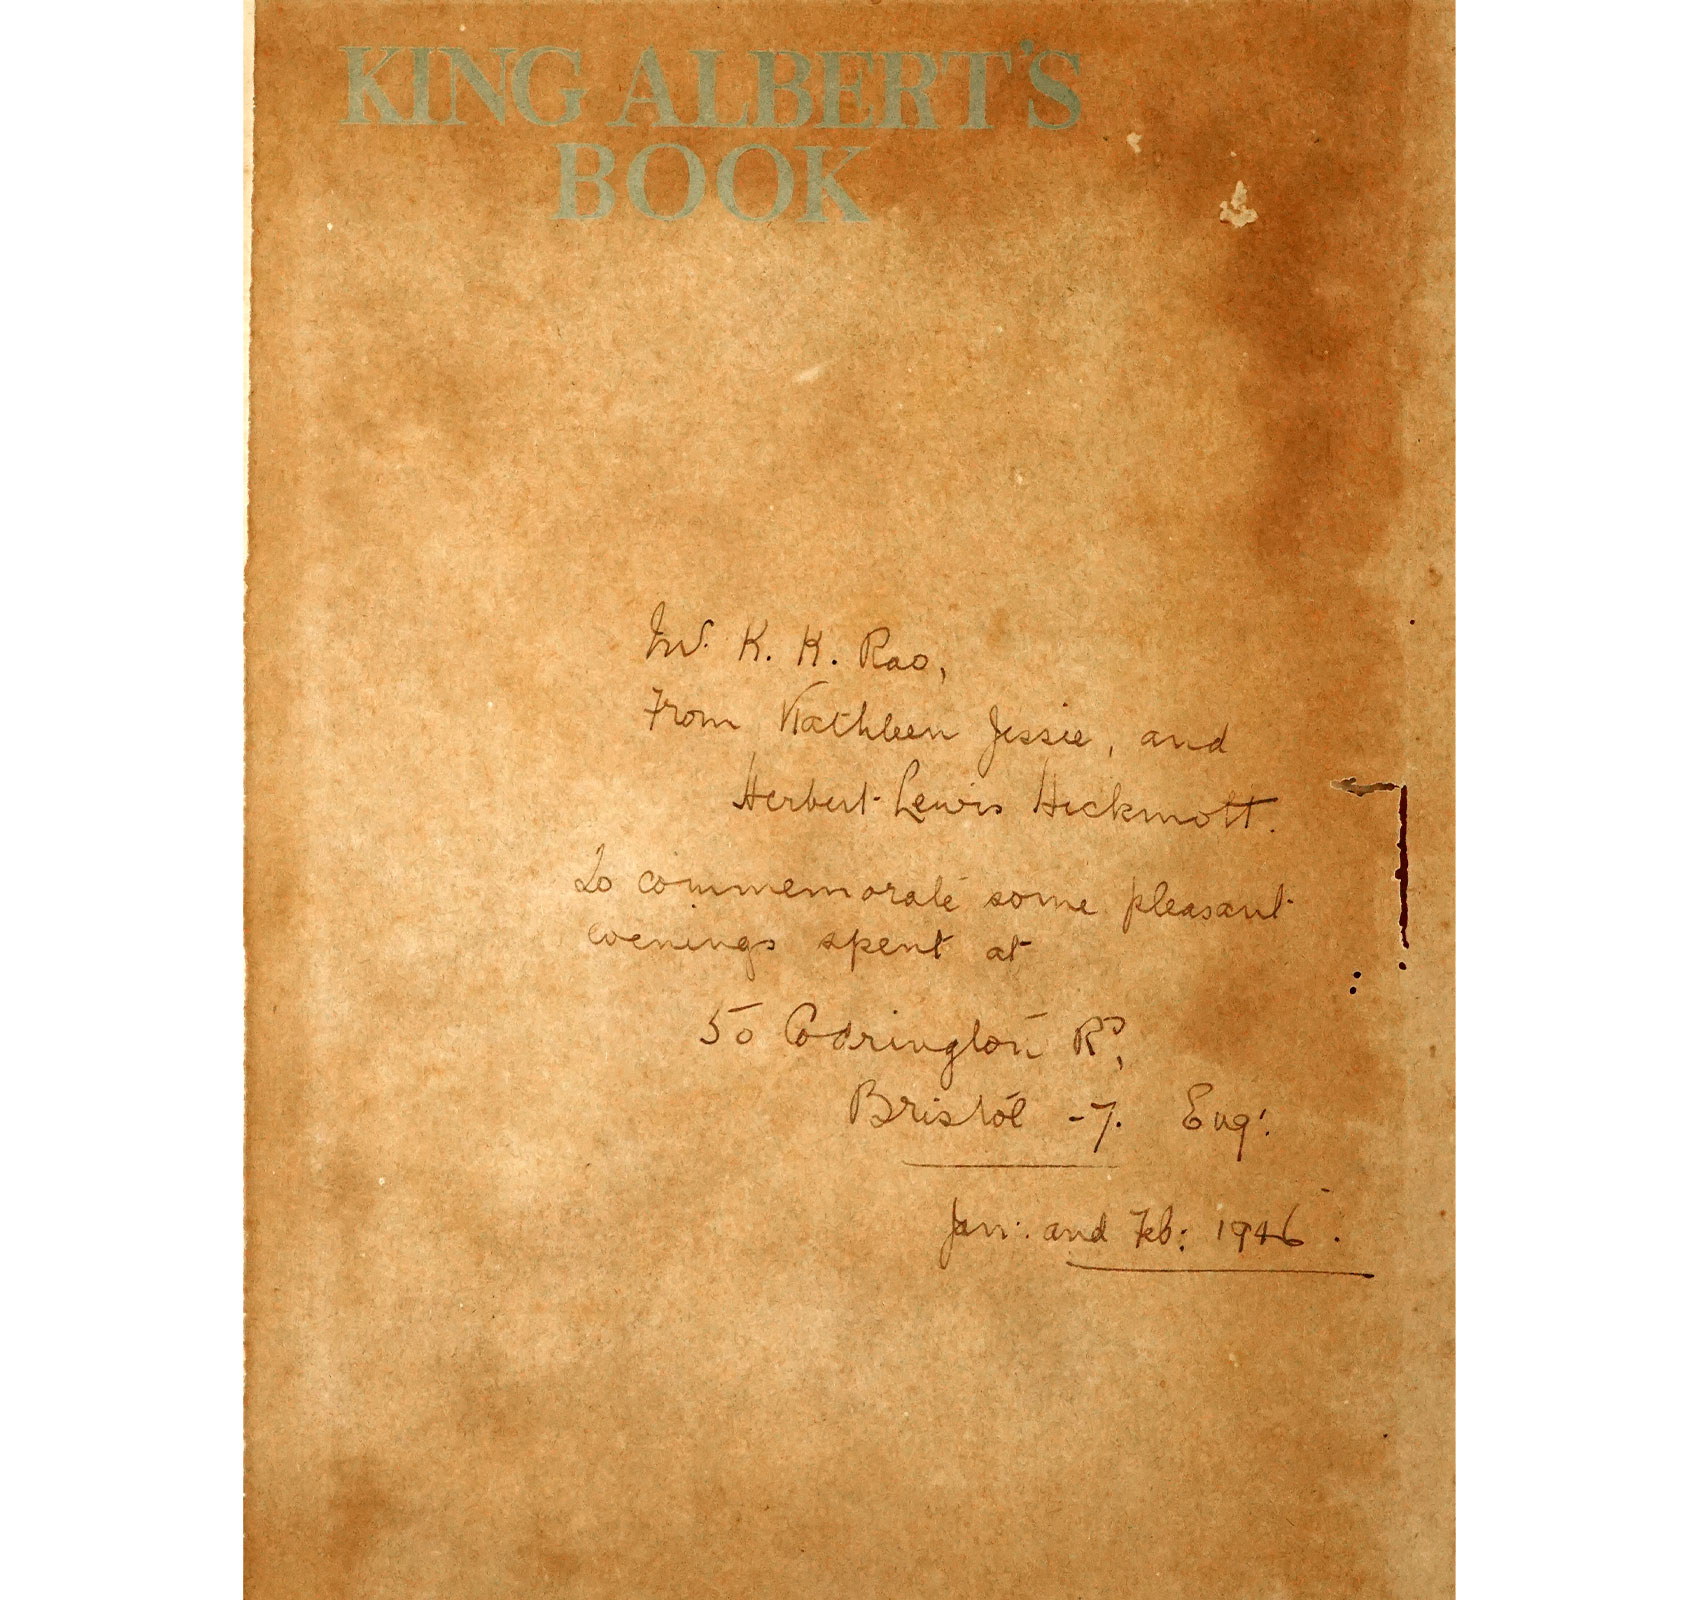 KING ALBERT'S
BOOK
Mr. K. K. Rao,
From Kathleen Jessie, and
Herbert Lewis Hickmott.
To commemorate some pleasant
evenings spent at
50 Codrington Rd,
Bristol -7. Eng:
Jan: and Feb: 1946.